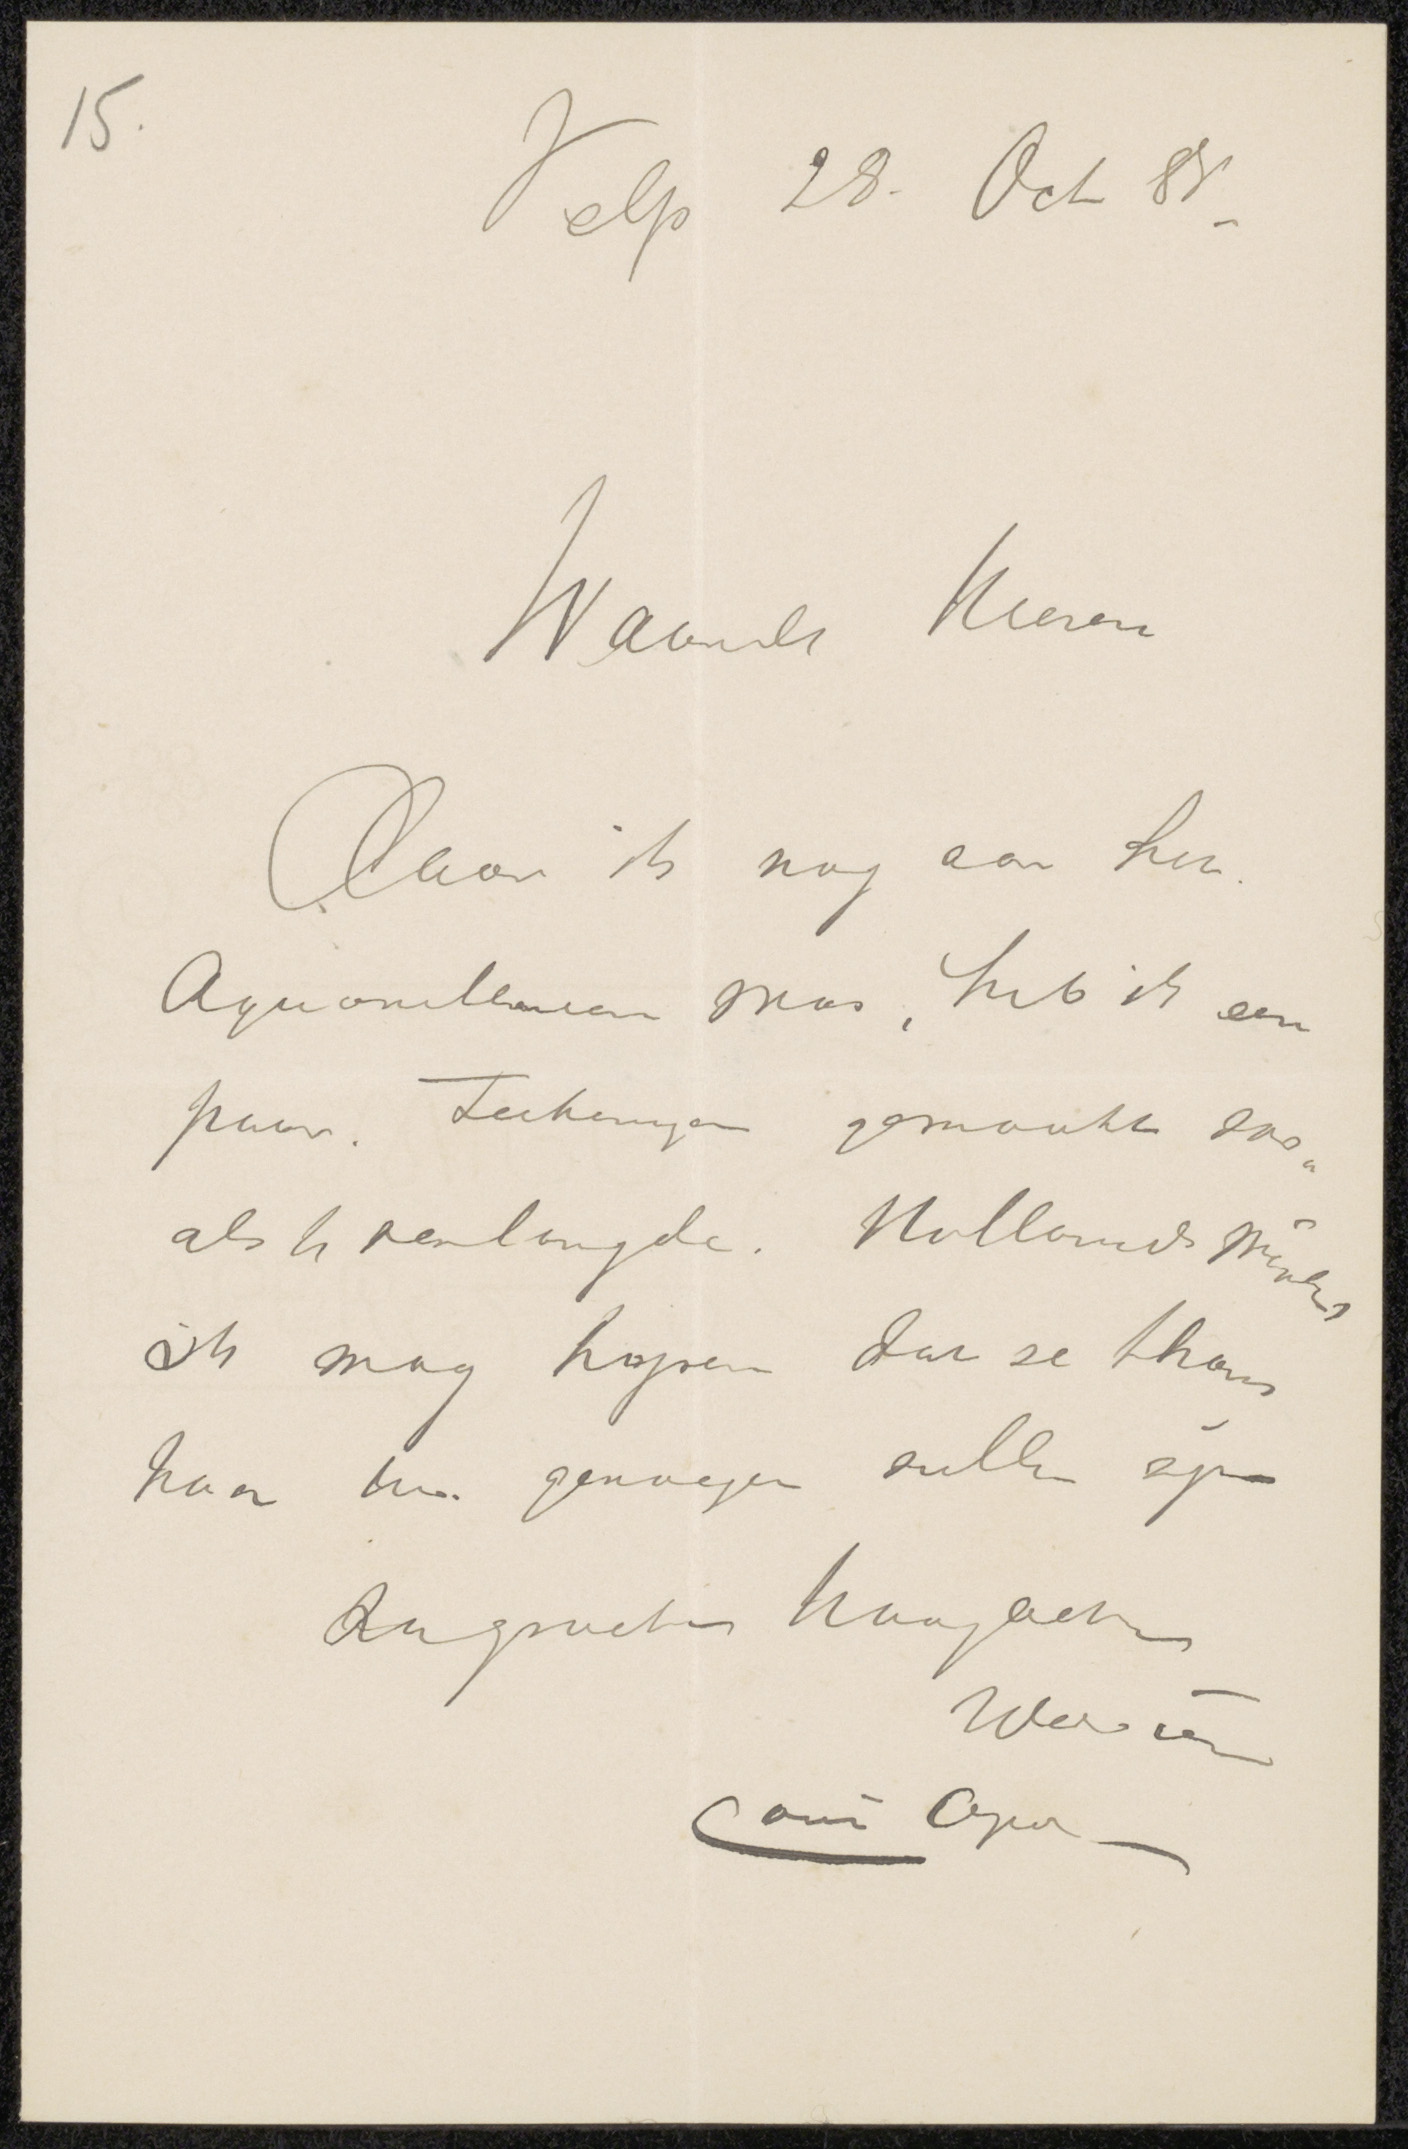 15.
Velp 28. Oct 88.
Waarde Heeren
Daar ik nog aan het
Aquarelleeren was, heb ik een
paar Teekeningen gemaakt zoo
als U verlangde. Hollandsch
ik mag hopen dat ze thans
naar Uw genoegen zullen zijn
Hoogacht
Louis Apol